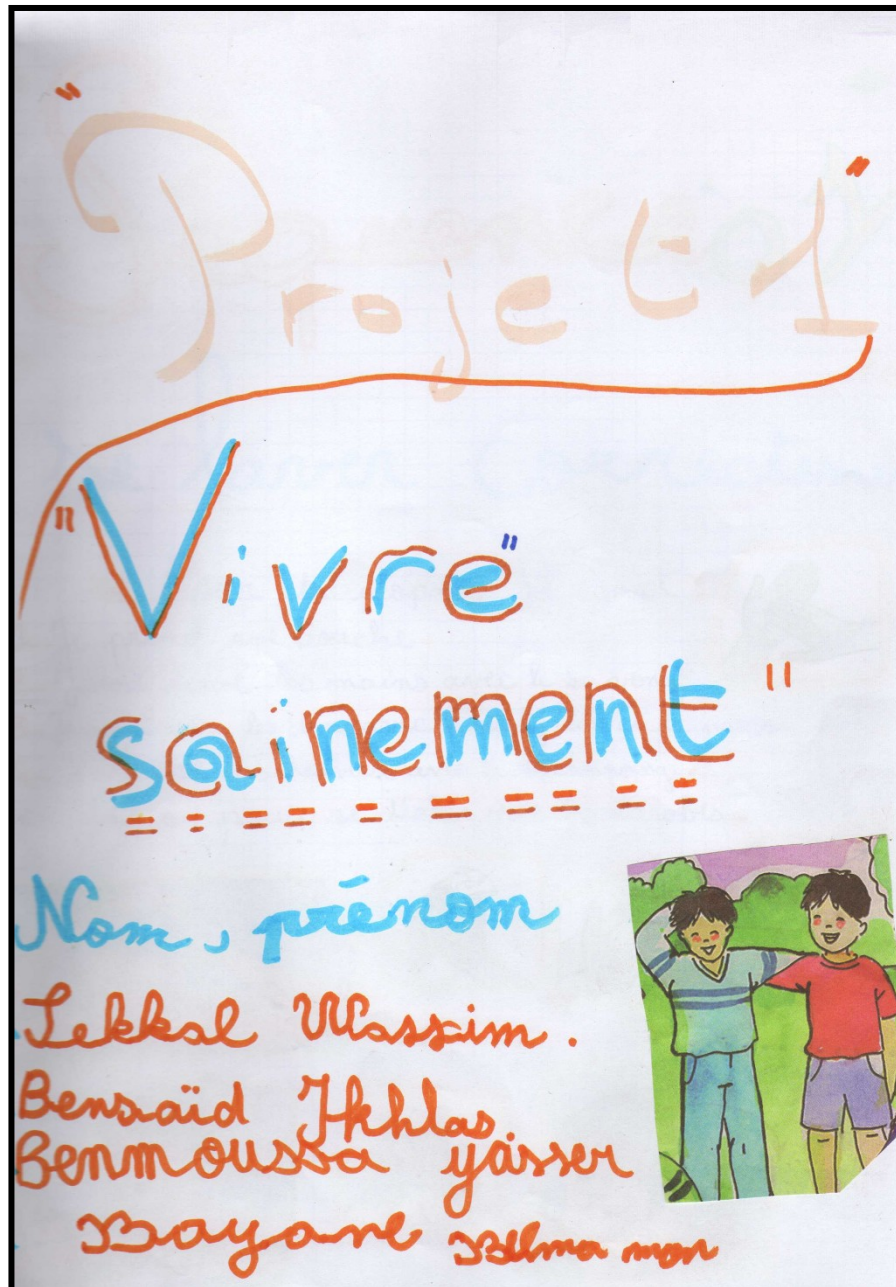 "Projet 1"
"Vivre"
sainement"
Nom, prénom
Lekkal Wassim.
Bensaïd Ikhlas
Benmoussa yasser
Bayane